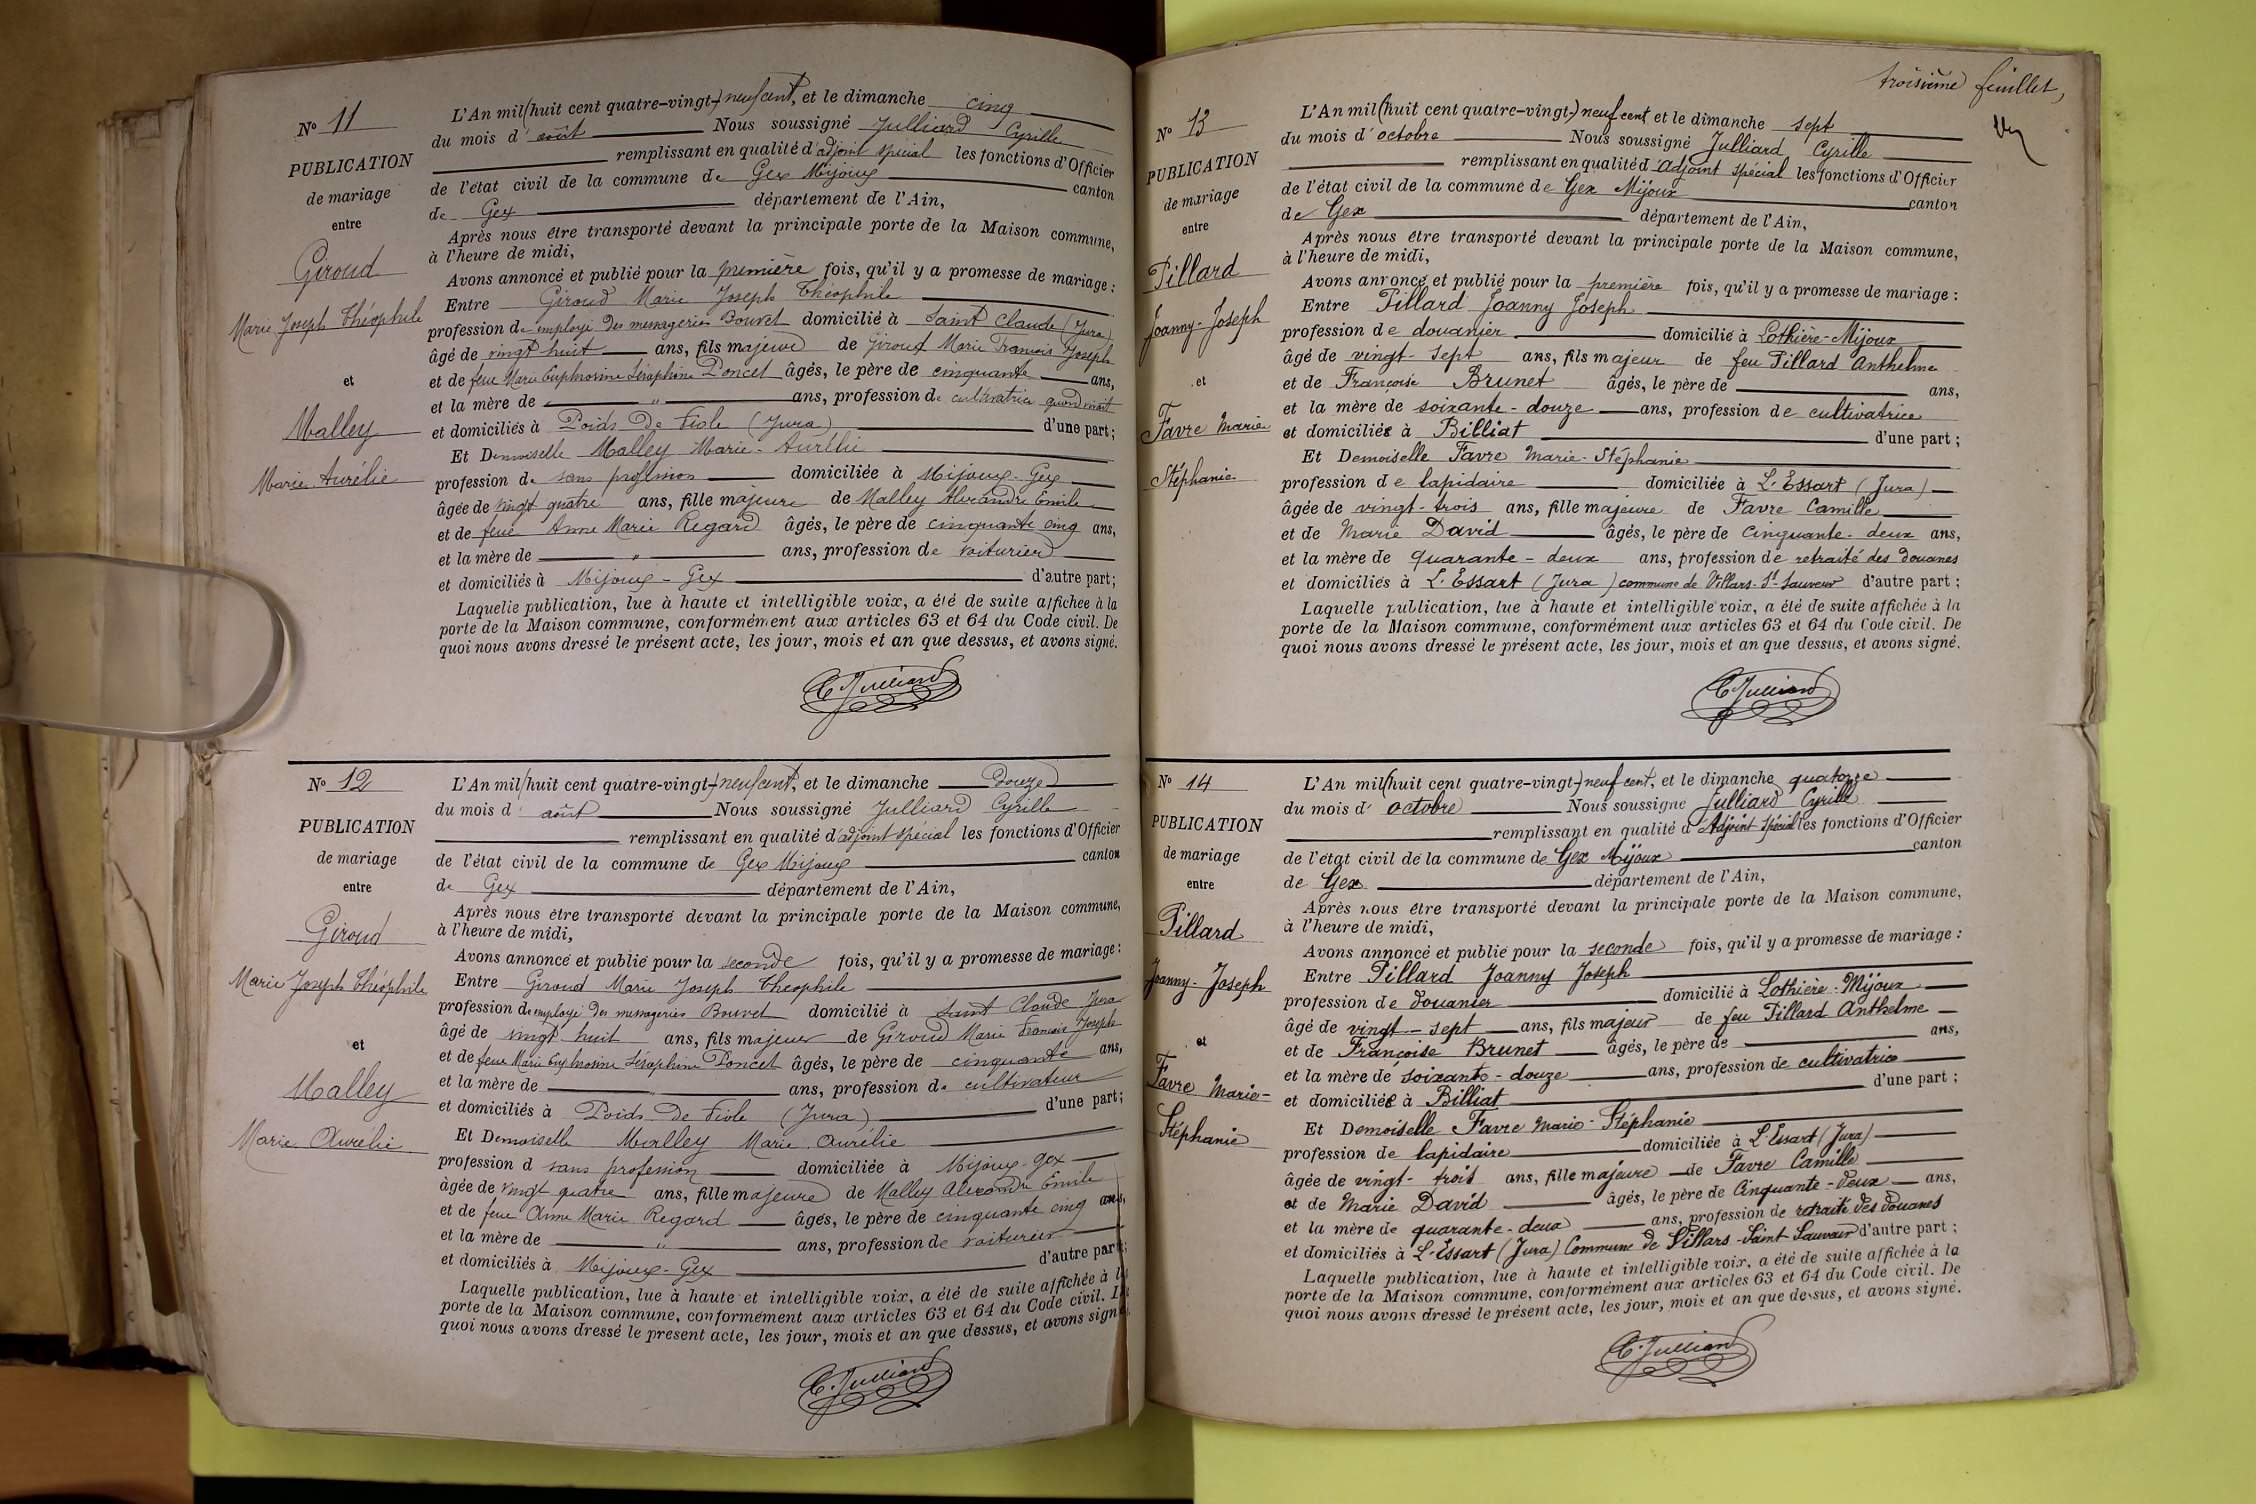 N° 11
PUBLICATION
de mariage
entre
Giroud
Marie Joseph Théophile
et
Malley
Marie Aurélie
L'An mil (huit cent quatre-vingt-) neuf cent, et le dimanche cinq
du mois d'août Nous soussigné Julliard Cyrille
remplissant en qualité d'adjoint spécial les fonctions d'Officier
de l'état civil de la commune de Gex Mijoux canton
de Gex département de l'Ain,
Après nous être transporté devant la principale porte de la Maison commune,
à l'heure de midi,
Avons annoncé et publié pour la première fois, qu'il y a promesse de mariage :
Entre Giroud Marie Joseph Théophile
profession de employé des messageries Bouvet domicilié à Saint Claude (Jura)
âgé de vingt huit ans, fils majeur de Giroud Marie François Joseph
et de feue Marie Euphrosine Séraphine Poncet âgés, le père de cinquante ans,
et la mère de " ans, profession de cultivatrice quand vivait
et domiciliés à Poids de Fiole (Jura) d'une part ;
Et Demoiselle Malley Marie-Aurélie
profession de sans profession domiciliée à Mijoux-Gex
âgée de vingt quatre ans, fille majeure de Malley Alexandre Emile
et de feue Anne Marie Regard âgés, le père de cinquante cinq ans,
et la mère de " ans, profession de voiturier
et domiciliés à Mijoux-Gex d'autre part ;
Laquelle publication, lue à haute et intelligible voix, a été de suite affichée à la
porte de la Maison commune, conformément aux articles 63 et 64 du Code civil. De
quoi nous avons dressé le présent acte, les jour, mois et an que dessus, et avons signé.
C. Julliard
N° 12
PUBLICATION
de mariage
entre
Giroud
Marie Joseph Théophile
et
Malley
Marie Aurélie
L'An mil (huit cent quatre-vingt-) neuf cent, et le dimanche douze
du mois d' août Nous soussigné Julliard Cyrille
remplissant en qualité d'adjoint spécial les fonctions d'Officier
de l'état civil de la commune de Gex Mijoux canton
de Gex département de l'Ain,
Après nous être transporté devant la principale porte de la Maison commune,
à l'heure de midi,
Avons annoncé et publié pour la seconde fois, qu'il y a promesse de mariage :
Entre Giroud Marie Joseph Theophile
profession de employé des messageries Bouvet domicilié à Saint Claude Jura
âgé de vingt huit ans, fils majeur de Giroud Marie François Joseph
et de feue Marie Euphrosine Séraphine Poncet âgés, le père de cinquante ans,
et la mère de ans, profession de cultivateur
et domiciliés à Poids de Fiole (Jura) d'une part ;
Et Demoiselle Malley Marie Aurélie
profession d sans profession domiciliée à Mijoux-Gex
âgée de vingt quatre ans, fille majeure de Malley Alexandre Emile
et de feue Anne Marie Regard âgés, le père de cinquante cinq ans,
et la mère de " ans, profession de voiturier
et domiciliés à Mijoux-Gex d'autre part ;
Laquelle publication, lue à haute et intelligible voix, a été de suite affichée à la
porte de la Maison commune, conformément aux articles 63 et 64 du Code civil. De
quoi nous avons dressé le présent acte, les jour, mois et an que dessus, et avons signé.
C. Julliard
troisième feuillet,
N° 13
PUBLICATION
de mariage
entre
Pillard
Joanny-Joseph
et
Favre Marie
Stéphanie
L'An mil (huit cent quatre-vingt-) neuf cent, et le dimanche sept
du mois d'octobre Nous soussigné Julliard Cyrille
remplissant en qualité d'adjoint spécial les fonctions d'Officier
de l'état civil de la commune de Gex Mijoux canton
de Gex département de l'Ain,
Après nous être transporté devant la principale porte de la Maison commune,
à l'heure de midi,
Avons annoncé et publié pour la première fois, qu'il y a promesse de mariage :
Entre Pillard Joanny Joseph
profession de douanier domicilié à Lothière-Mijoux
âgé de vingt-sept ans, fils majeur de feu Pillard Anthelme
et de Françoise Brunet âgés, le père de ans,
et la mère de soixante-douze ans, profession de cultivatrice
et domiciliés à Billiat d'une part ;
Et Demoiselle Favre Marie-Stéphanie
profession de lapidaire domiciliée à L'Essart (Jura)
âgée de vingt-trois ans, fille majeure de Favre Camille
et de Marie David âgés, le père de cinquante-deux ans,
et la mère de quarante-deux ans, profession de retraité des douanes
et domiciliés à L'Essart (Jura) commune de Villars-St-Sauveur d'autre part ;
Laquelle publication, lue à haute et intelligible voix, a été de suite affichée à la
porte de la Maison commune, conformément aux articles 63 et 64 du Code civil. De
quoi nous avons dressé le présent acte, les jour, mois et an que dessus, et avons signé.
C. Julliard
N° 14
PUBLICATION
de mariage
entre
Pillard
Joanny-Joseph
et
Favre Marie-
Stéphanie
L'An mil (huit cent quatre-vingt-) neuf cent, et le dimanche quatorze
du mois d' octobre Nous soussigné Julliard Cyrille
remplissant en qualité d'Adjoint spécial les fonctions d'Officier
de l'état civil de la commune de Gex Mijoux canton
de Gex département de l'Ain,
Après nous être transporté devant la principale porte de la Maison commune,
à l'heure de midi,
Avons annoncé et publié pour la seconde fois, qu'il y a promesse de mariage :
Entre Pillard Joanny Joseph
profession de douanier domicilié à Lothière-Mijoux
âgé de vingt-sept ans, fils majeur de feu Pillard Anthelme
et de Françoise Brunet âgés, le père de ans,
et la mère de soixante-douze ans, profession de cultivatrice
et domiciliés à Billiat d'une part ;
Et Demoiselle Favre Marie-Stéphanie
profession de lapidaire domiciliée à L'Essart (Jura)
âgée de vingt-trois ans, fille majeure de Favre Camille
et de Marie David âgés, le père de Cinquante-deux ans,
et la mère de quarante-deux ans, profession de retraité des douanes
et domiciliés à L'Essart (Jura) Commune de Villars-Saint Sauveur d'autre part ;
Laquelle publication, lue à haute et intelligible voix, a été de suite affichée à la
porte de la Maison commune, conformément aux articles 63 et 64 du Code civil. De
quoi nous avons dressé le présent acte, les jour, mois et an que dessus, et avons signé.
C. Julliard